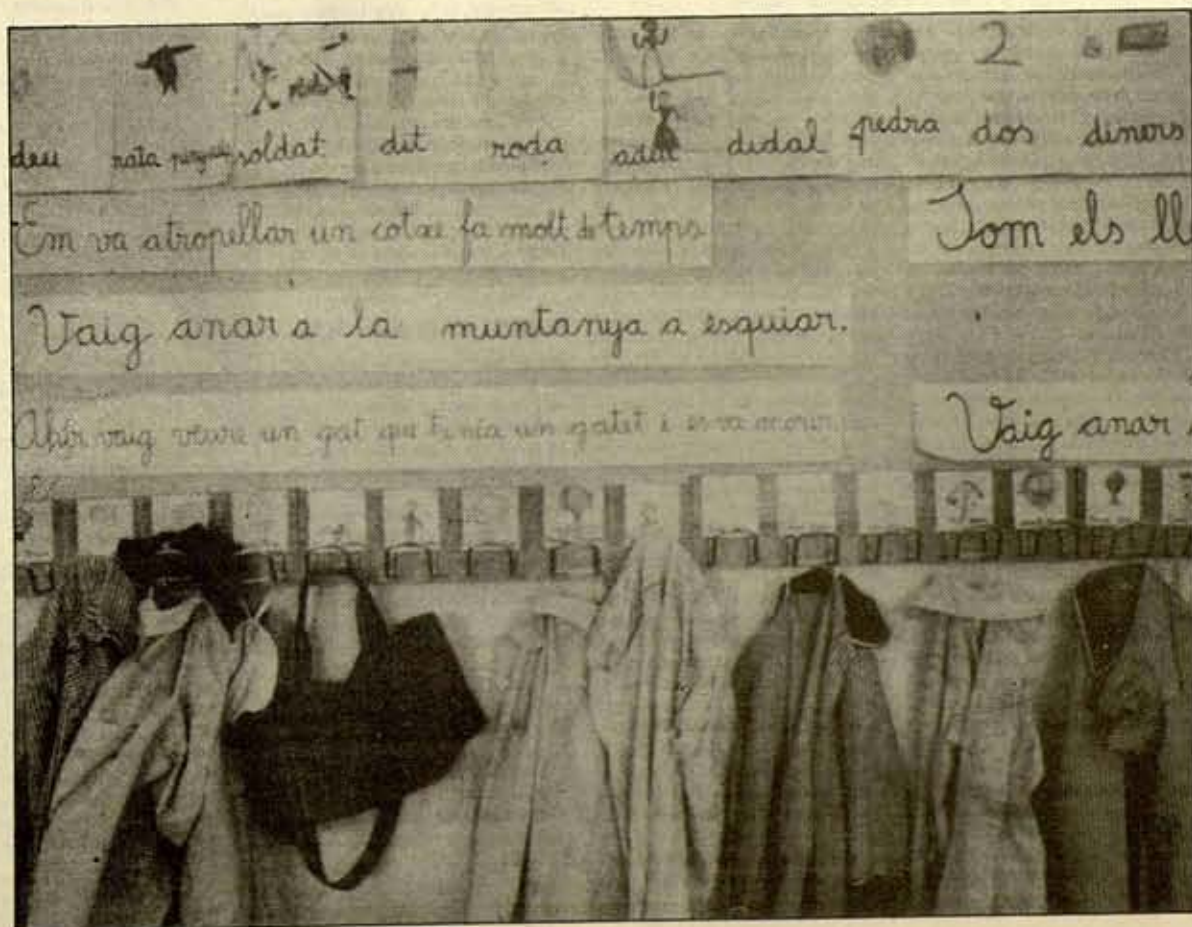 deu rata soldat dit roda didal pedra 2 dos diners
Em va atropellar un cotxe fa molt de temps
Som els ll
Vaig anar a la muntanya a esquiar.
Ahir vaig veure un gat que tenía un gatet i es va morir
Vaig anar